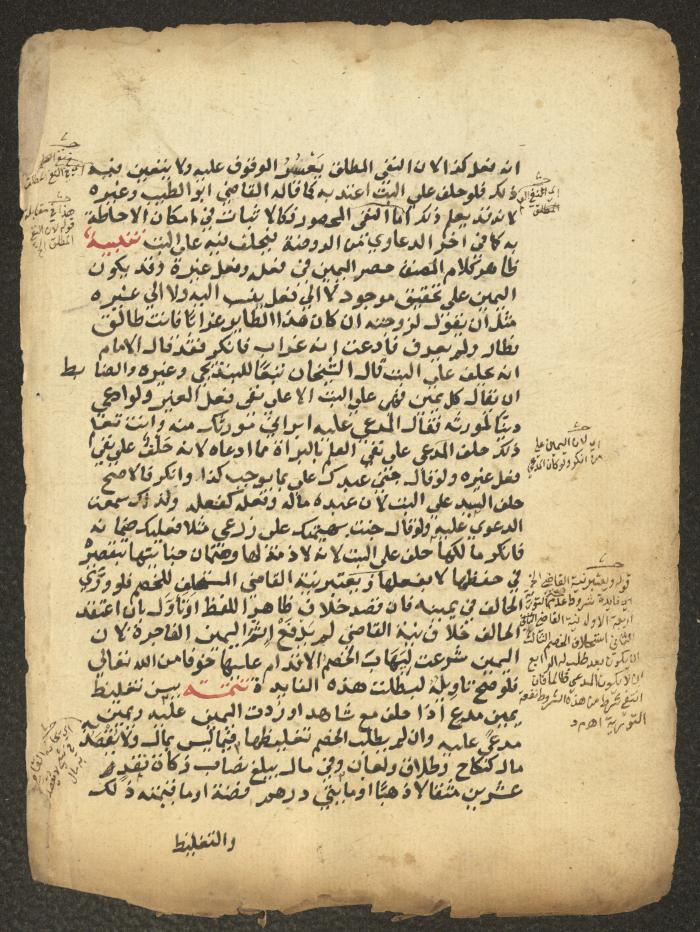 انه فعل كذا لان النفي المطلق يعسر الوقوف عليه ولا يتعين فيه
ذلك فلو حلف علي البت اعتد به كما قاله القاضي ابو الطيب وغيره
لانه قد يعلم ذلك اما النفي المحصور فكالاثبات في امكان الاحاطة
به كما في اخر الدعاوي من الروضة فيحلف فيه علي البت تنبيه
ظاهر كلام المصنف حصر اليمين في فعله وفعل غيره وقد يكون
اليمين علي تحقيق موجود لا الي فعل ينسب اليه ولا الي غيره
مثل ان يقول لزوجته ان كان هذا الطاير غرابا فانت طالق
فطار ولم يعرف فادعت انه غراب فانكر فقد قال الامام
انه يحلف علي البت قال الشيخان تبعا للبندنيجي وغيره والضابط
ان يقال كل يمين فهي علي البت الا علي نفي فعل الغير ولو ادعي
دينا لمورثه فقال المدعي عليه ابراني مورثك منه وانت تعلم
ذلك حلف المدعي علي نفي العلم بالبراة مما ادعاه لانه حلف علي نفي
فعل غيره ولو قال جني عبدك علي بما يوجب كذا وانكر فالاصح
حلف السيد علي البت لان عبده ماله وفعله كفعله ولذلك سمعت
الدعوي عليه ولو قال جنت بهيمتك علي زرعي مثلا فعليك ضمانه
فانكر مالكها حلف علي البت لانه لا ذمة لها وضمان جنايتها بتقصيره
في حفظها لا بفعلها وتعتبر نية القاضي المستحلف للخصم فلو وري
الحالف في يمينه فان قصد خلاف ظاهر اللفظ او تاول بان اعتقد
الحالف خلاف نية القاضي لم يدفع اثم اليمين الفاجرة لان
اليمين شرعت ليهاب الخصم الاقدام عليها خوفا من الله تعالي
فلو صح تاويله لبطلت هذه الفايدة تتمته يسن تغليظ
يمين مدع اذا حلف مع شاهد او ردت اليمين عليه ويمين
مدعي عليه وان لم يطلب الخصم تغليظها فيما ليس بمال ولا يقصد به
مال كنكاح وطلاق ولعان وفي مال يبلغ نصاب زكاة نقد
عشرين مثقالا ذهبا او مايتي درهم فضة او ما قيمته ذلك
والتغليظ
اي النفي
المطلق
اي لان اليمين علي
من انكر ولو كان المدعي
قوله وتعتبر نية القاضي الخ
اربعة الاول نية القاضي
الثاني استحلاف القاضي الثالث
ان يكون بعد طلبه الرابع
التورية اهـ